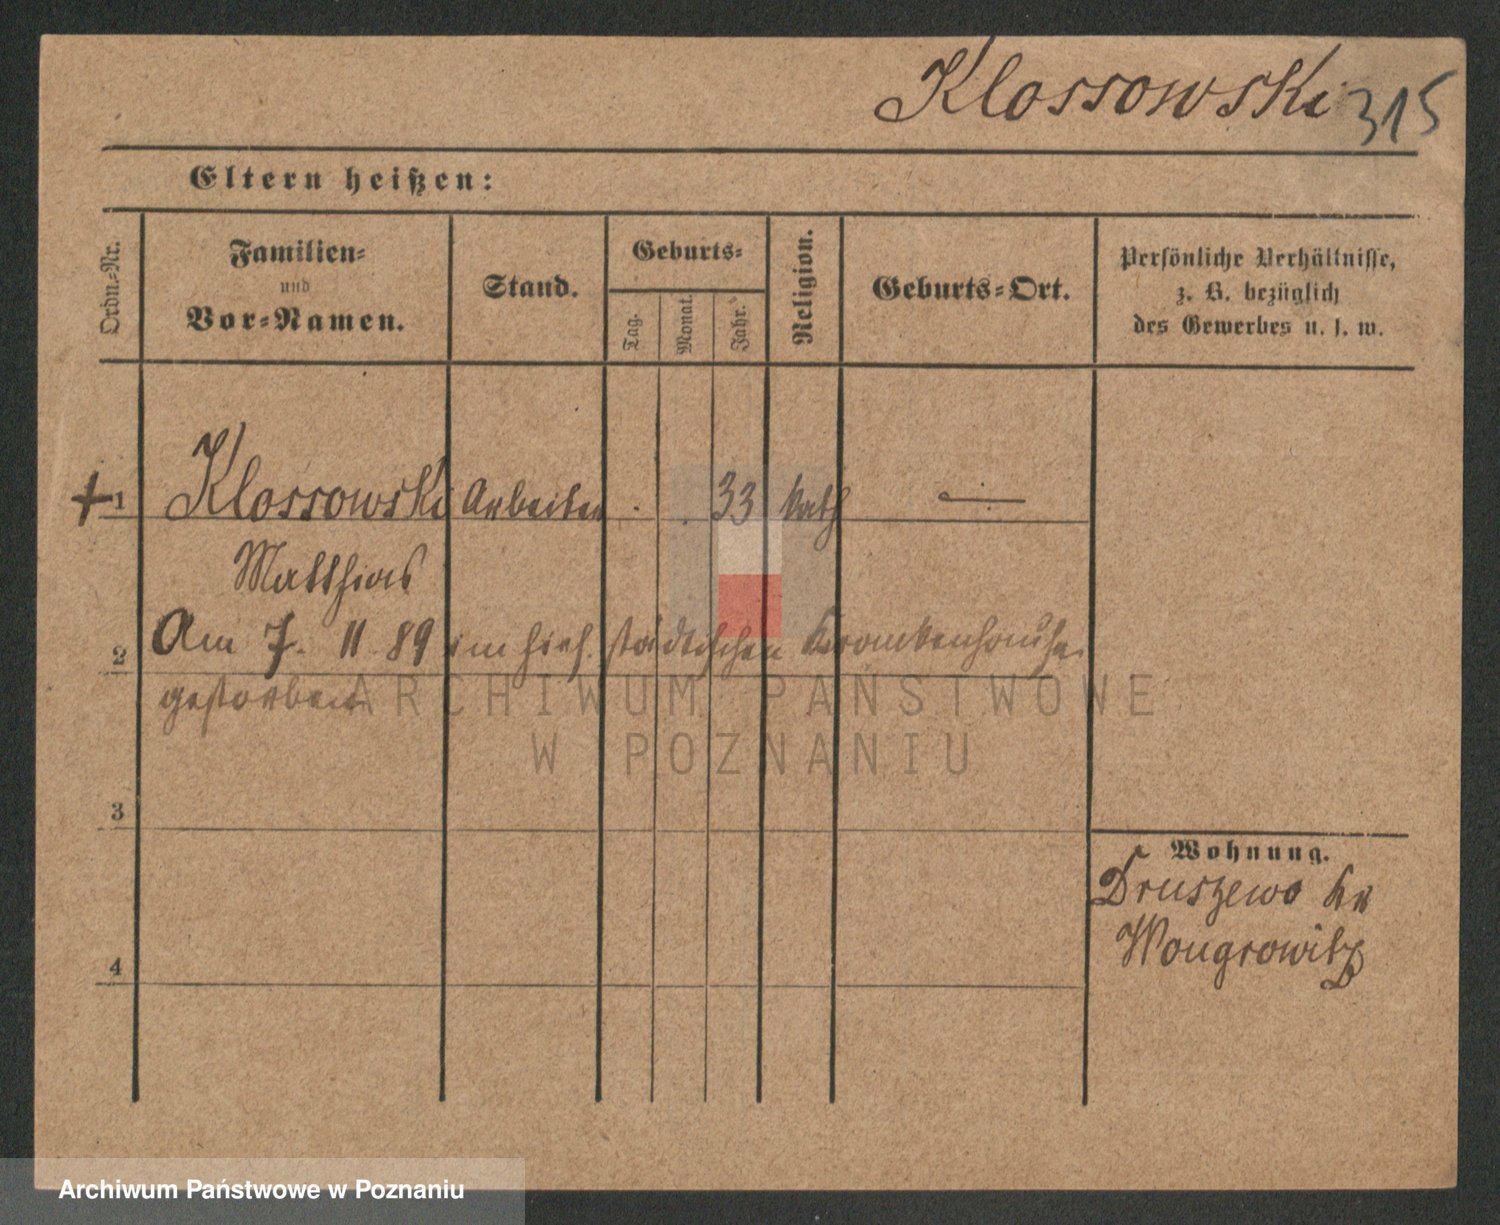 Klossowski 315
Eltern heißen:
Ordn.-Nr.
Familien-
und
Vor-Namen.
Stand.
Geburts-
Tag.
Monat.
Jahr.
Religion.
Geburts-Ort.
Persönliche Verhältnisse,
z. B. bezüglich
des Gewerbes u. s. w.
+ 1 Klossowski Arbeiter . . 33 Kath —
Matthias
2 Am 7. 11. 89 im hies. städtischen Krankenhause
gestorben
ARCHIWUM PAŃSTWOWE
W POZNANIU
3
Wohnung.
Druszewo Kr
Wongrowitz
4
Archiwum Państwowe w Poznaniu